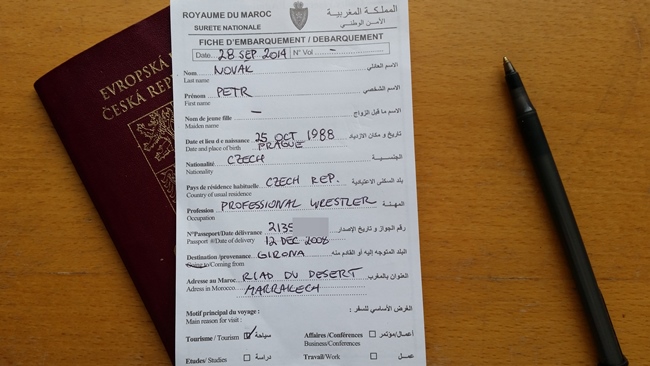 EVROPSKÁ
ČESKÁ REP
ROYAUME DU MAROC المملكة المغربية
SURETE NATIONALE الأمن الوطني
FICHE D'EMBARQUEMENT / DEBARQUEMENT
Date 28 SEP 2014 N° Vol –
Nom NOVAK الاسم العائلي
Last name
Prénom PETR الاسم الشخصي
First name
Nom de jeune fille – الاسم ما قبل الزواج
Maiden name
Date et lieu de naissance 25 OCT 1988 تاريخ و مكان الازدياد
Date and place of birth PRAGUE
Nationalité CZECH الجنسيـــة
Nationality
Pays de résidence habituelle CZECH REP. بلد السكنى الاعتيادية
Country of usual residence
Profession PROFESSIONAL WRESTLER المهنــة
Occupation
N°Passeport/Date délivrance 2139 رقم الجواز و تاريخ الإصدار
Passport #/Date of delivery 12 DEC 2008
Destination /provenance GIRONA البلد المتوجه إليه أو القادم منه
Going to/Coming from
Adresse au Maroc RIAD DU DESERT العنوان بالمغرب
Adress in Morocco MARRAKECH
Motif principal du voyage : الغرض الأساسي للسفر :
Main reason for visit :
Tourisme / Tourism سياحة Affaires /Conférences أعمال/مؤتمر
Business/Conferences
Etudes/ Studies دراسة Travail/Work عمـــل